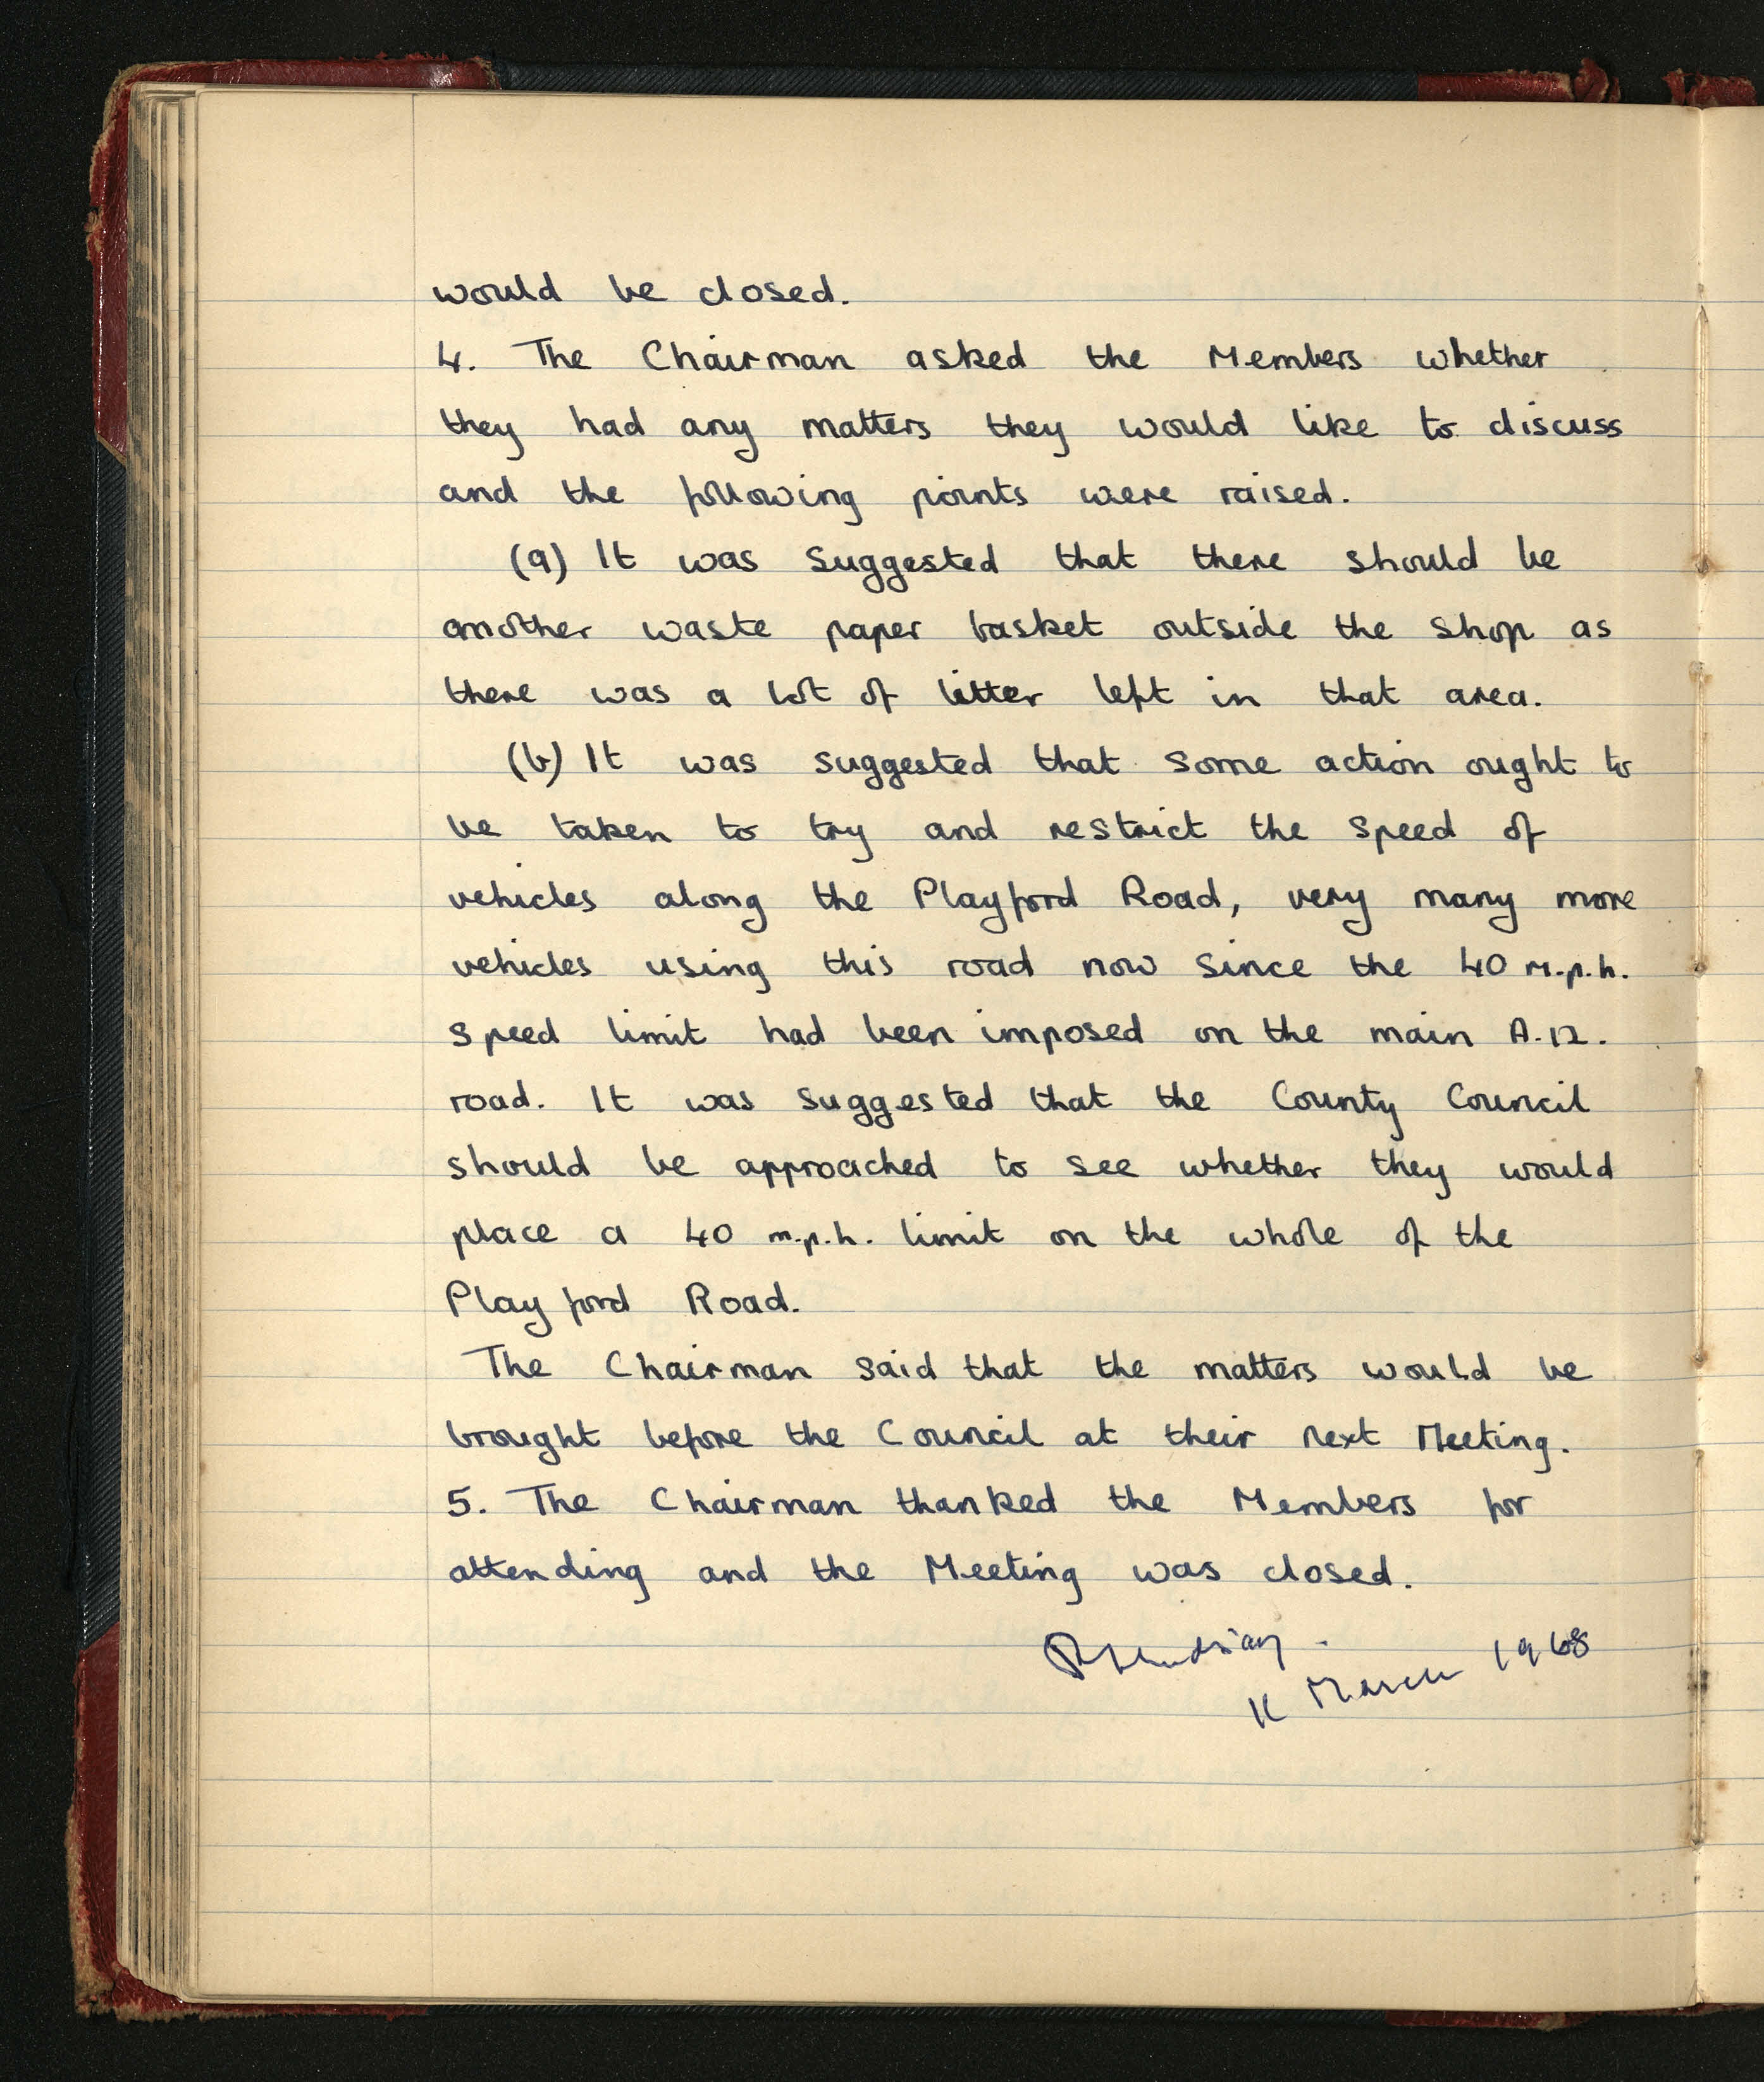 would be closed.
4. The Chairman asked the Members whether
they had any matters they would like to discuss
and the following points were raised.
(a) It was suggested that there should be
another waste paper basket outside the shop as
there was a lot of litter left in that area.
(b) It was suggested that some action ought to
be taken to try and restrict the speed of
vehicles along the Playford Road, very many more
vehicles using this road now since the 40 m.p.h.
speed limit had been imposed on the main A.12.
road. It was suggested that the County Council
should be approached to see whether they would
place a 40 m.p.h. limit on the whole of the
Playford Road.
The Chairman said that the matters would be
brought before the Council at their next Meeting.
5. The Chairman thanked the Members for
attending and the Meeting was closed.
March 1968